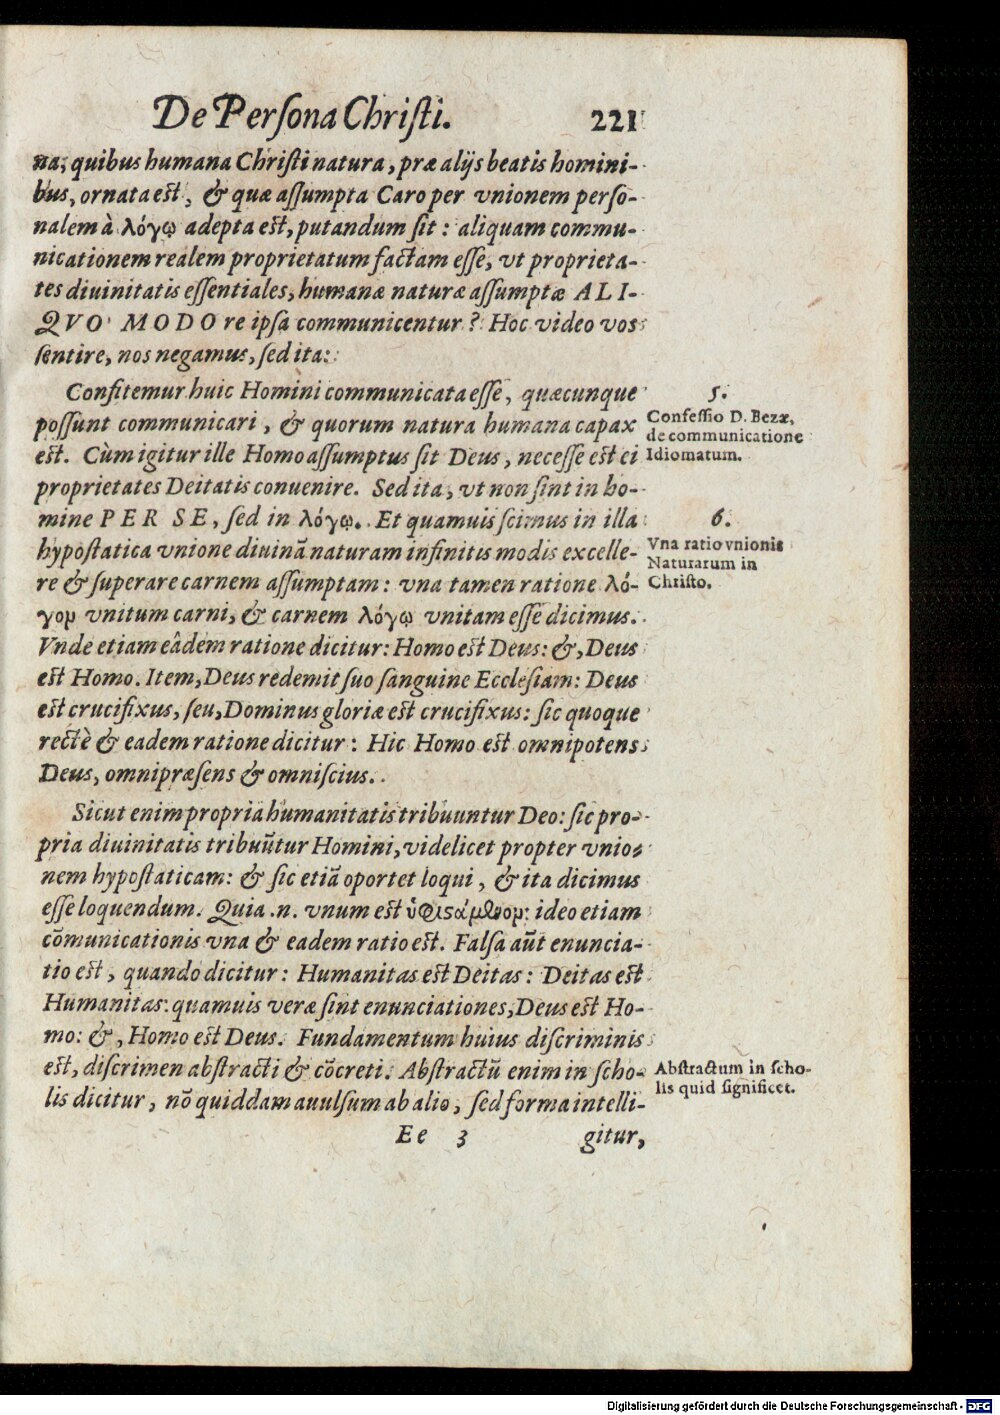 De Perſona Chriſti. 221
na, quibus humana Chriſti natura, præ alijs beatis homini-
bus, ornata est, & quæ aſſumpta Caro per vnionem perſo-
nalem à λόγῳ adepta est, putandum ſit: aliquam commu-
nicationem realem proprietatum factam eſſe, vt proprieta-
tes diuinitatis eſſentiales, humanæ naturæ aſſumptæ ALI-
QVO MODO re ipſa communicentur? Hoc video vos
ſentire, nos negamus, ſed ita:
Confitemur huic Homini communicata eſſe, quæcunque
poſſunt communicari, & quorum natura humana capax
est. Cùm igitur ille Homo aſſumptus ſit Deus, neceſſe est ei
proprietates Deitatis conuenire. Sed ita, vt non ſint in ho-
mine PER SE, ſed in λόγῳ. Et quamuis ſcimus in illa
hypoſtatica vnione diuinā naturam infinitis modis excelle-
re & ſuperare carnem aſſumptam: vna tamen ratione λό-
γον vnitum carni, & carnem λόγῳ vnitam eſſe dicimus.
Vnde etiam eâdem ratione dicitur: Homo est Deus: &, Deus
est Homo. Item, Deus redemit ſuo ſanguine Eccleſiam: Deus
est crucifixus, ſeu, Dominus gloriæ est crucifixus: ſic quoque
rectè & eadem ratione dicitur: Hic Homo est omnipotens
Deus, omnipræſens & omniſcius.
Sicut enim propria humanitatis tribuuntur Deo: ſic pro-
pria diuinitatis tribuūtur Homini, videlicet propter vnio-
nem hypoſtaticam: & ſic etiā oportet loqui, & ita dicimus
eſſe loquendum. Quia .n. vnum est ὑφιςάμενον: ideo etiam
cōmunicationis vna & eadem ratio est. Falſa aūt enuncia-
tio est, quando dicitur: Humanitas est Deitas: Deitas est
Humanitas: quamuis veræ ſint enunciationes, Deus est Ho-
mo: &, Homo est Deus. Fundamentum huius diſcriminis
est, diſcrimen abſtracti & cōcreti. Abſtractū enim in ſcho-
lis dicitur, nō quiddam auulſum ab alio, ſed forma intelli-
Ee 3 gitur,
5.
Confeſſio D. Bezæ,
de communicatione
Idiomatum.
6.
Vna ratio vnionis
Naturarum in
Chriſto.
Abſtractum in ſcho-
lis quid ſignificet.
Digitalisierung gefördert durch die Deutsche Forschungsgemeinschaft - DFG